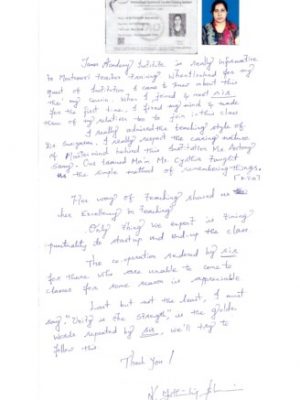 Janas Academy Institute is really informative
in Montessori teacher training. When I looked for my
quest of Institution I came to know about this
thr' my cousin. When I faced & meet sir
for the first time, I fixed my mind & made
them of my relation too to join in this class
I really admired the teaching style of
I really respect the caring nature
of Mastermind behind this Institution Mr Antony
Our Ma'm Ms Cynthia taught
us the simple method of remembering things.
Her way of teaching showed us
her Excellency in Teaching
Only thing we expect is timing
punctuality to start up and end-up the class
The co-operation rendered by sir
for those who are unable to come to
classes for some reason is appreciable
Last but not the least, I must
say, "Unity is the Strength" is the golden
words repeated by sir, we'll try to
follow this
Thank you!